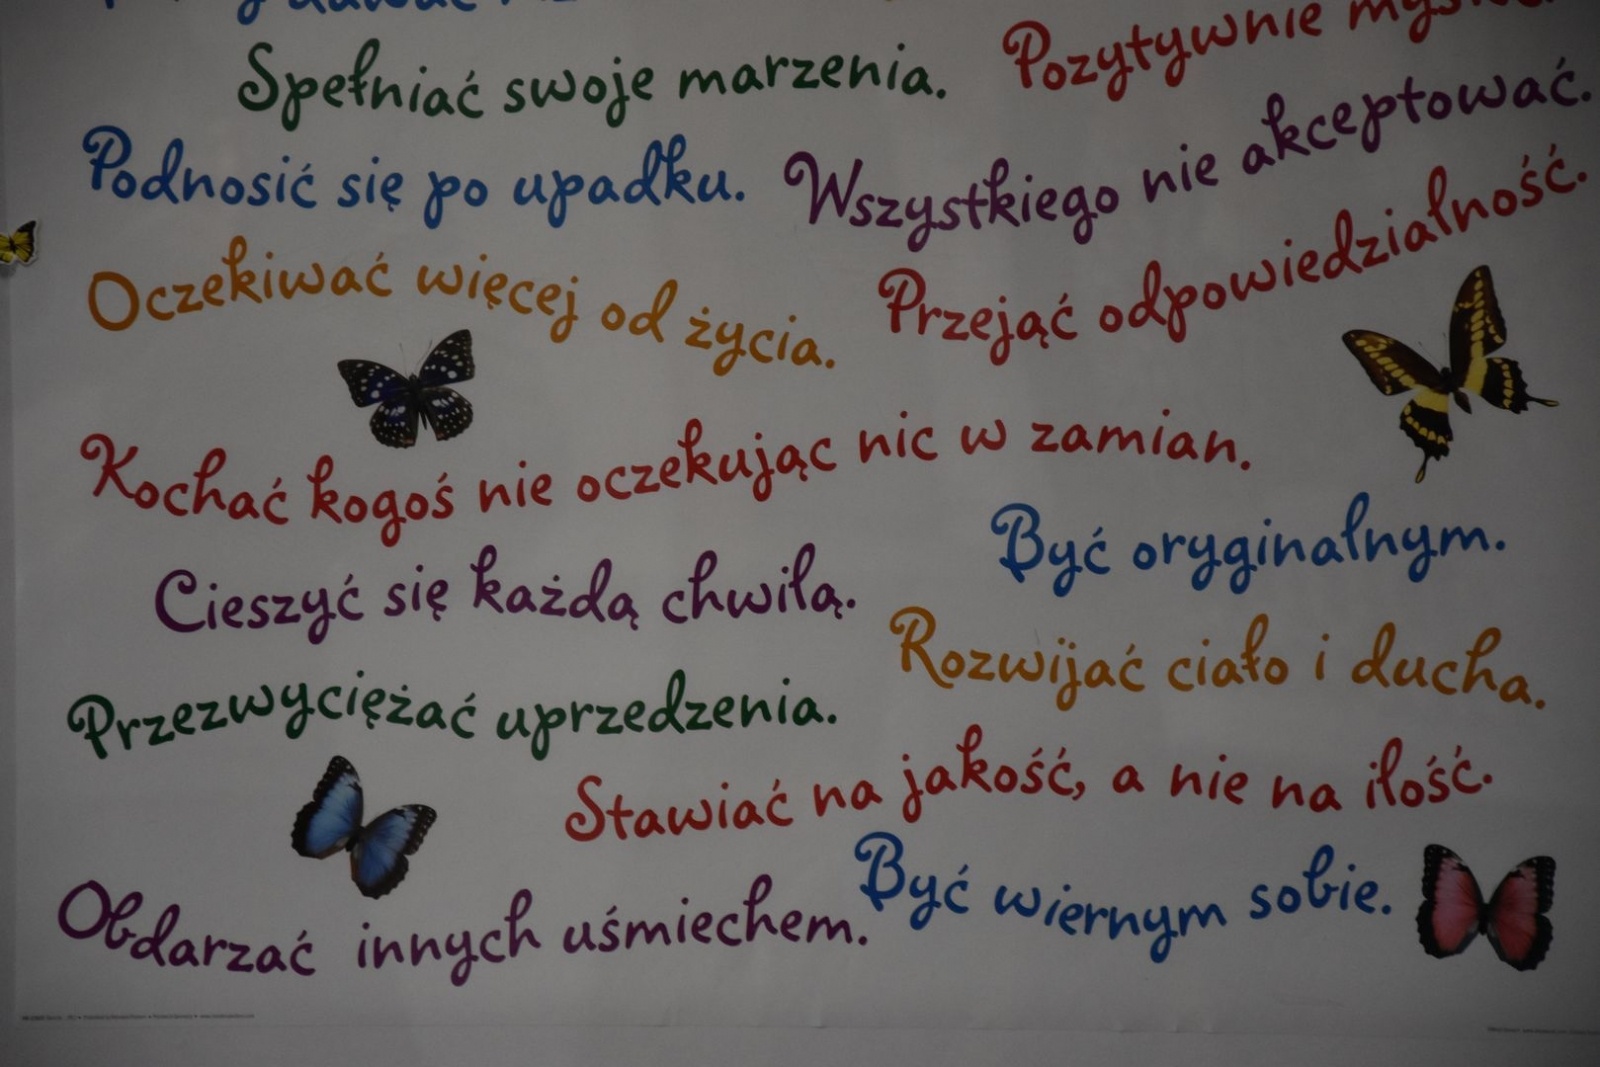 Spełniać swoje marzenia.
Pozytywnie
Podnosić się po upadku.
Wszystkiego nie akceptować.
Oczekiwać więcej od życia.
Przejąć odpowiedzialność.
Kochać kogoś nie oczekując nic w zamian.
Być oryginalnym.
Cieszyć się każdą chwilą.
Rozwijać ciało i ducha.
Przezwyciężać uprzedzenia.
Stawiać na jakość, a nie na ilość.
Być wiernym sobie.
Obdarzać innych uśmiechem.